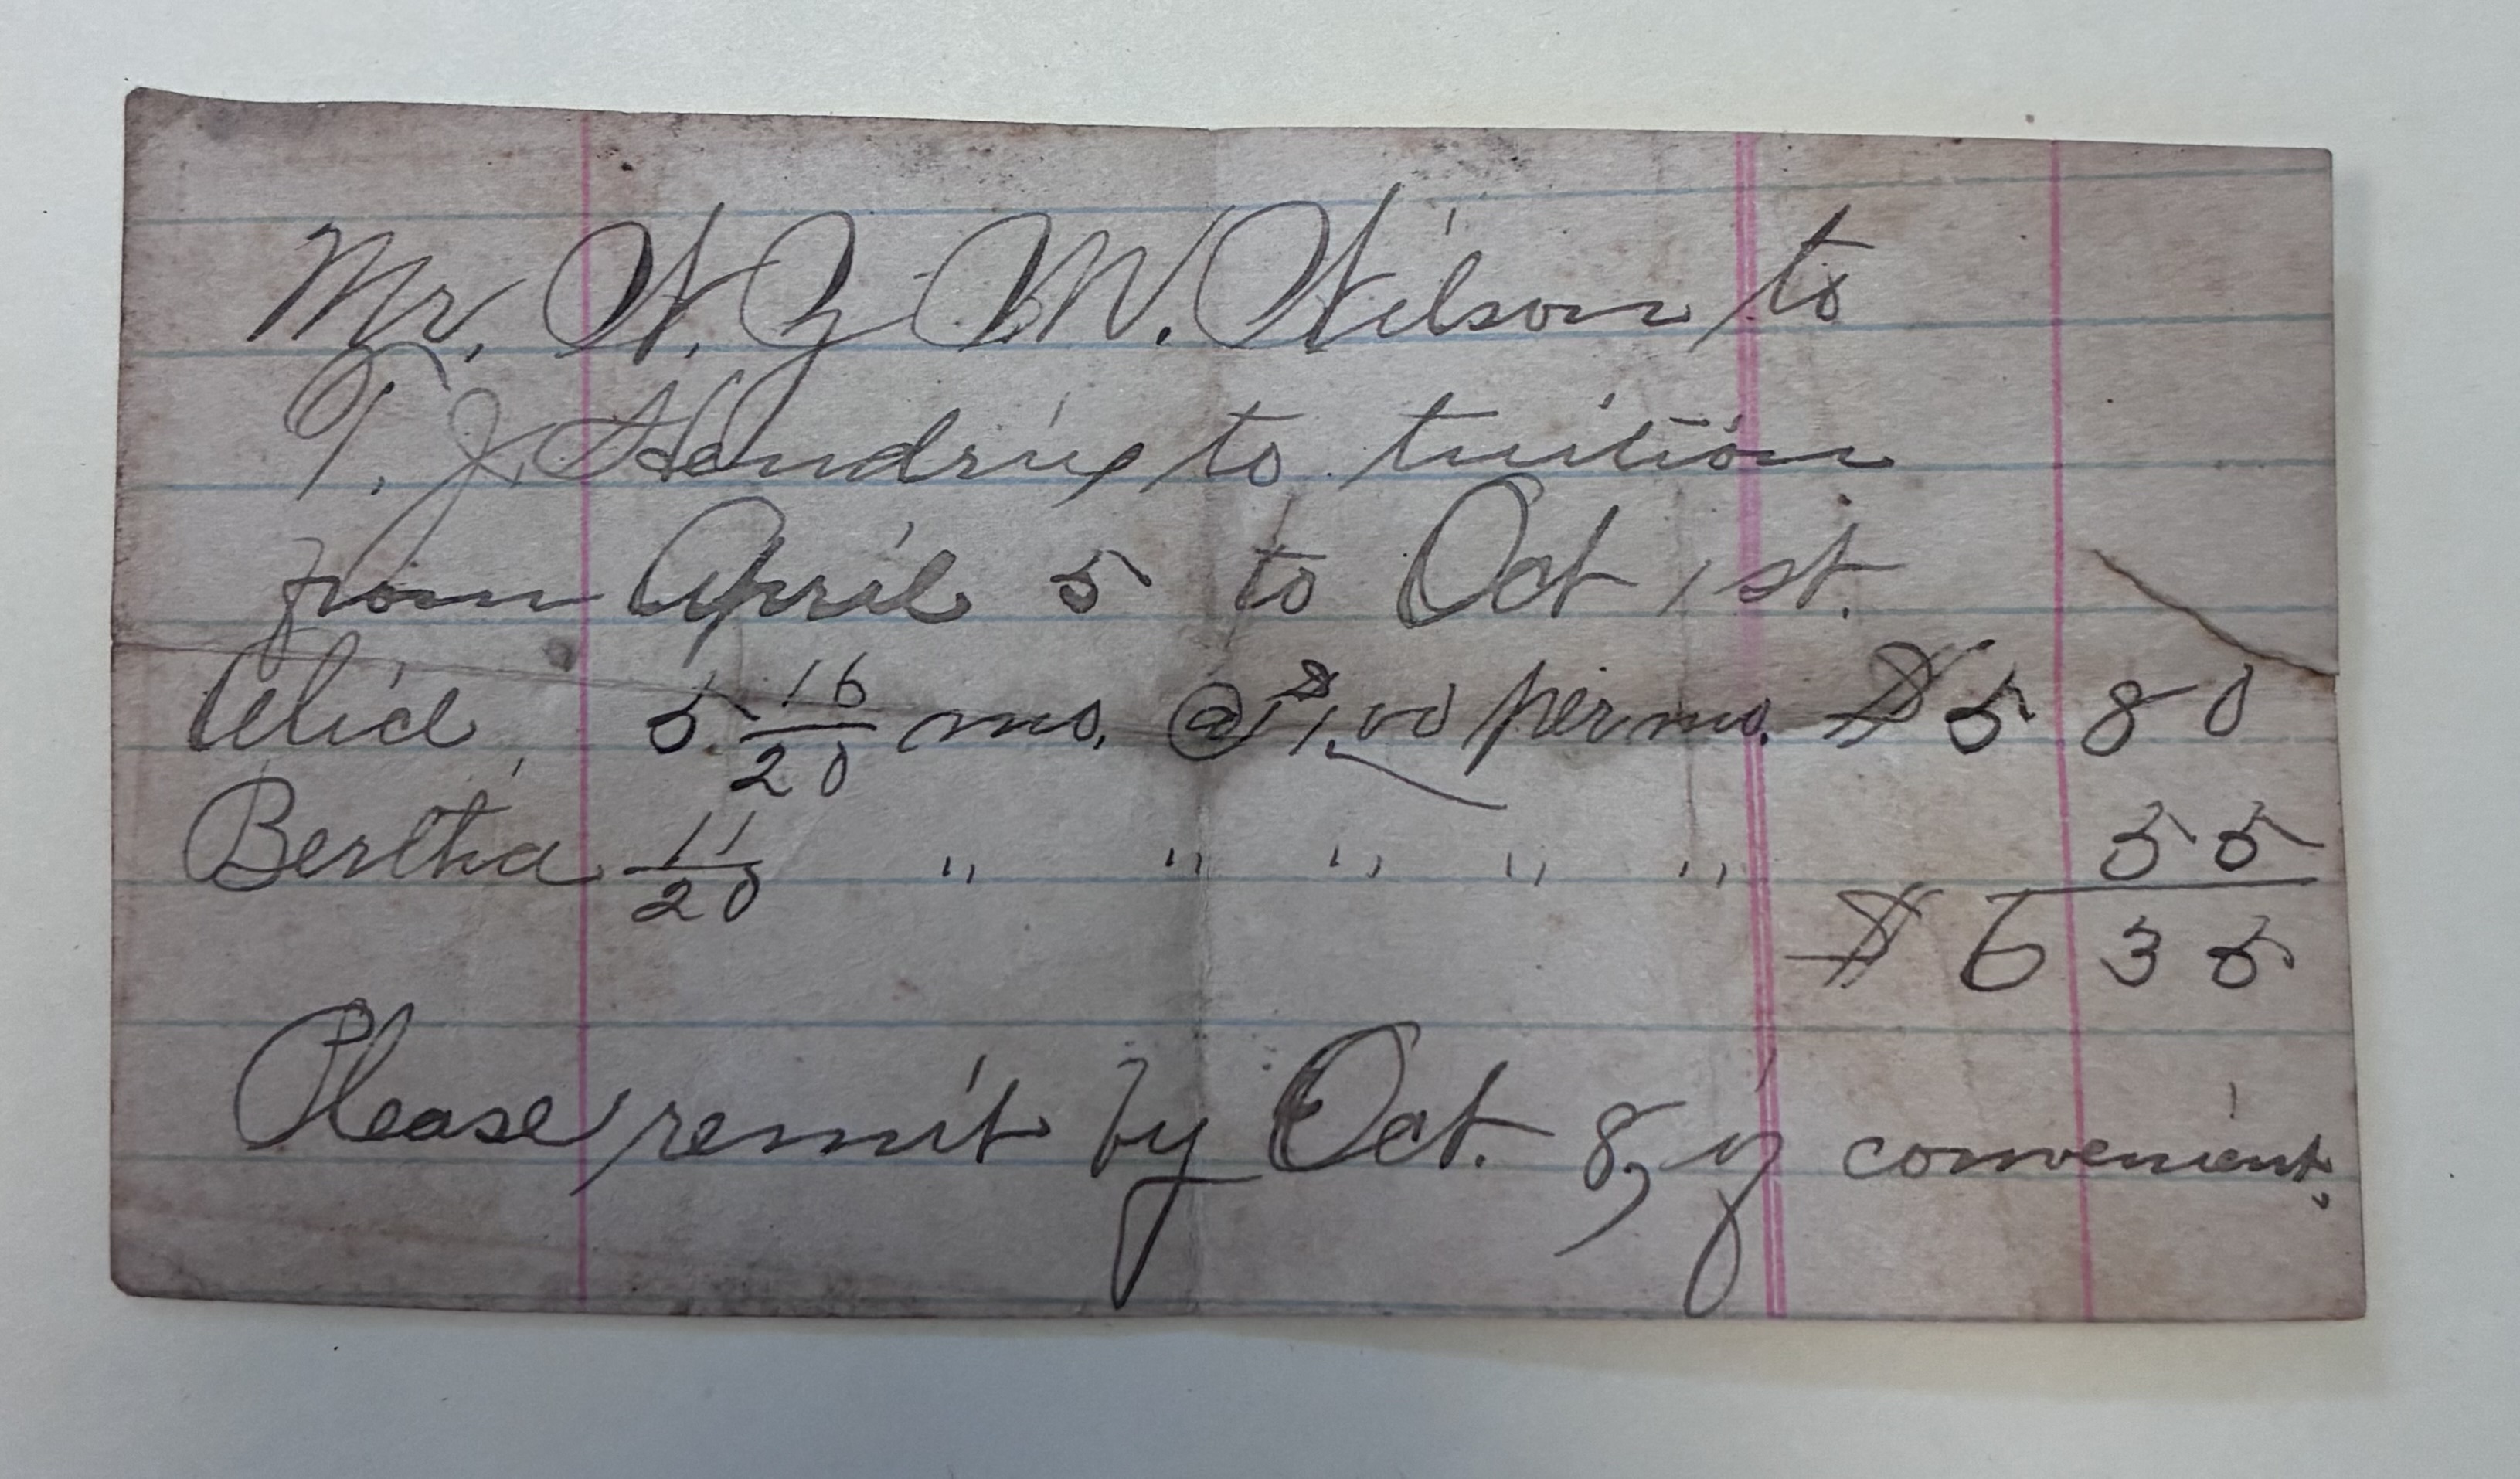 Mr. W. Z. M. Wilson to
T. J. Hendrix to tuition
from April 5 to Oct 1st.
Alice, 5 16/20 mo. @ $1.00 per mo. $5 80
Bertha 11/20 " " " " " 55
$6 35
Please remit by Oct. 8, if convenient.